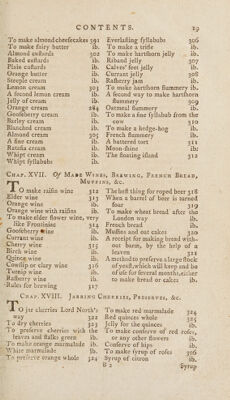 CONTENTS. 19
To make almond cheesecakes 291
To make fairy butter ib.
Almond custards 302
Baked custards ib.
Plain custards ib.
Orange butter ib.
Steeple cream ib.
Lemon cream 303
A second lemon cream ib.
Jelly of cream ib.
Orange cream 284
Gooseberry cream ib.
Barley cream ib.
Blanched cream ib.
Almond cream 305
A fine cream ib.
Ratafia cream ib.
Whipt cream ib.
Whipt syllabubs ib.
Everlasting syllabubs 306
To make a trifle ib.
To make hartshorn jelly ib.
Riband jelly 307
Calves' feet jelly ib.
Currant jelly 308
Rasberry jam ib.
To make hartshorn flummery ib.
A second way to make hartshorn
flummery 309
Oatmeal flummery ib.
To make a fine syllabub from the
cow 310
To make a hedge-hog ib.
French flummery ib.
A buttered tort 311
Moon-shine ib.
The floating island 312
CHAP. XVII. Of MADE WINES, BREWING, FRENCH BREAD,
MUFFINS, &c.
TO make raisin wine 312
Elder wine 313
Orange wine ib.
Orange wine with raisins ib.
To make elder flower wine, very
like Frontiniac 314
Gooseberry wine ib.
Currant wine ib.
Cherry wine 315
Birch wine ib.
Quince wine ib.
Cowslip or clary wine 316
Turnip wine ib.
Rasberry wine ib.
Rules for brewing 317
The best thing for roped beer 318
When a barrel of beer is turned
sour 319
To make wheat bread after the
London way ib.
French bread ib.
Muffins and oat cakes 320
A receipt for making bread with-
out barm, by the help of a
leaven 321
A method to preserve a large stock
of yeast, which will keep and be
of use for several months, either
to make bread or cakes ib.
CHAP. XVIII. JARRING CHERRIES, PRESERVES, &c.
TO jar cherries Lord North's
way 322
To dry cherries 323
To preserve cherries with the
leaves and stalks green ib.
To make orange marmalade ib.
White marmalade ib.
To preserve orange whole 324
To make red marmalade 324
Red quinces whole 325
Jelly for the quinces ib.
To make conserve of red roses,
or any other flowers ib.
Conserve of hips ib.
To make syrup of roses 326
Syrup of citron ib.
B 2 Syrup